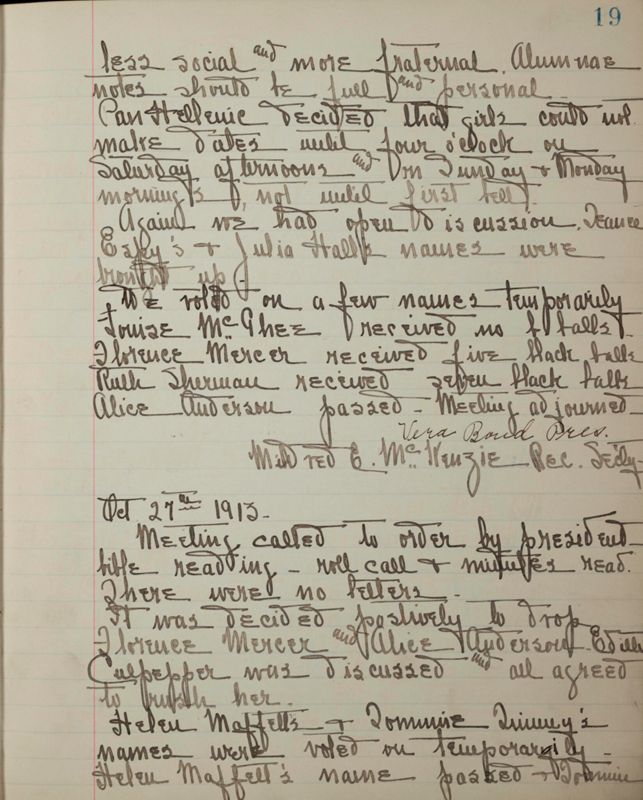 19
less social and more fraternal. Alumnae
notes should be full and personal.
Pan Hellenic decided that girls could not
make dates until four o'clock on
Saturday afternoons and on Sunday + Monday
morning's, not until first bell.
Again we had open discussion.
Espey's + Julia Hall's names were
brought up
We voted on a few names temporarily
Louise McGhee received no b balls.
Florence Mercer received five black balls
Ruth Sherman received seven black balls
Alice Anderson passed - Meeting adjourned -
Vera Bond Pres.
Mildred E. McKenzie Rec. Sec'ty-
Oct 27th 1913.
Meeting called to order by president -
bible reading - roll call + minutes read.
There were no letters.
It was decided postively to drop
Florence Mercer and Alice Anderson. Edith
Culpepper was discussed and all agreed
to rush her.
Helen Maffett's + Tommie Tinny's
names were voted on temporarily -
Helen Maffett's name passed + Tommie